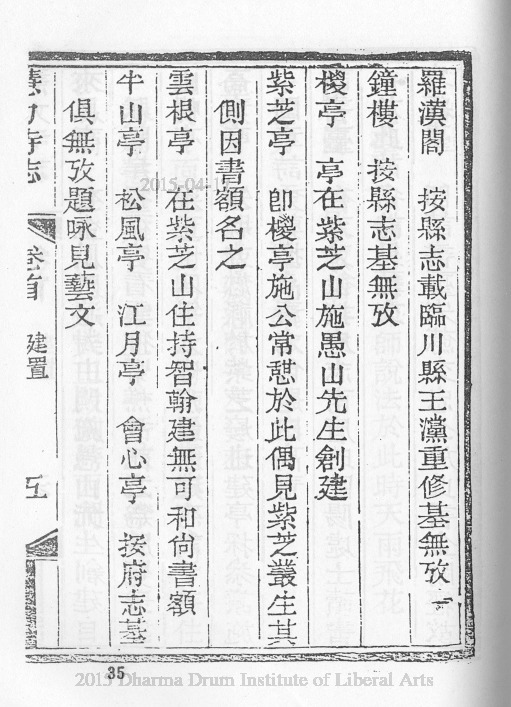 羅漢閣　按縣志載臨川縣王灋重修基無攷
鐘樓　按縣志基無攷
椶亭　亭在紫芝山施愚山先生創建
紫芝亭　卽椶亭施公常憇於此偶見紫芝叢生其
側因書額名之
雲根亭　在紫芝山住持智翰建無可和尙書額
半山亭　松風亭　江月亭　會心亭　按府志基
俱無攷題咏見藝文
寺志　卷首　建置　五
35
2015-04-1
2015 Dharma Drum Institute of Liberal Arts